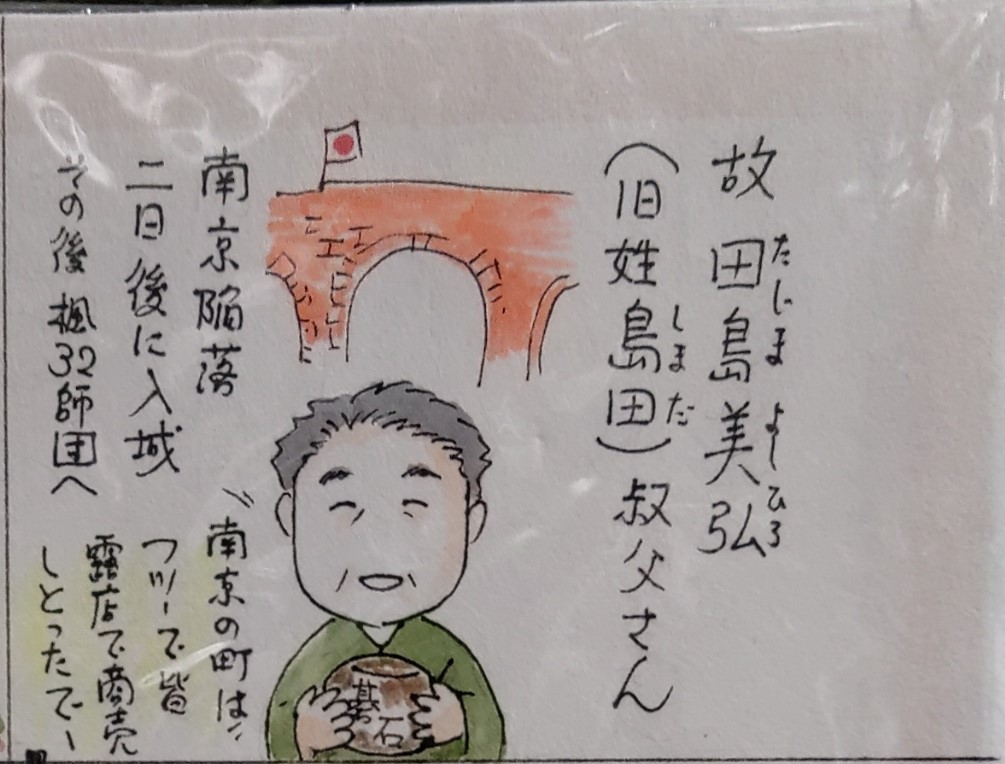 故 田島美弘
たじま よしひろ
(旧姓島田)叔父さん
しまだ
南京陥落
二日後に入城
その後 楓32師団へ
南京の町は
フツーで皆
露店で商売
しとったでー
碁石